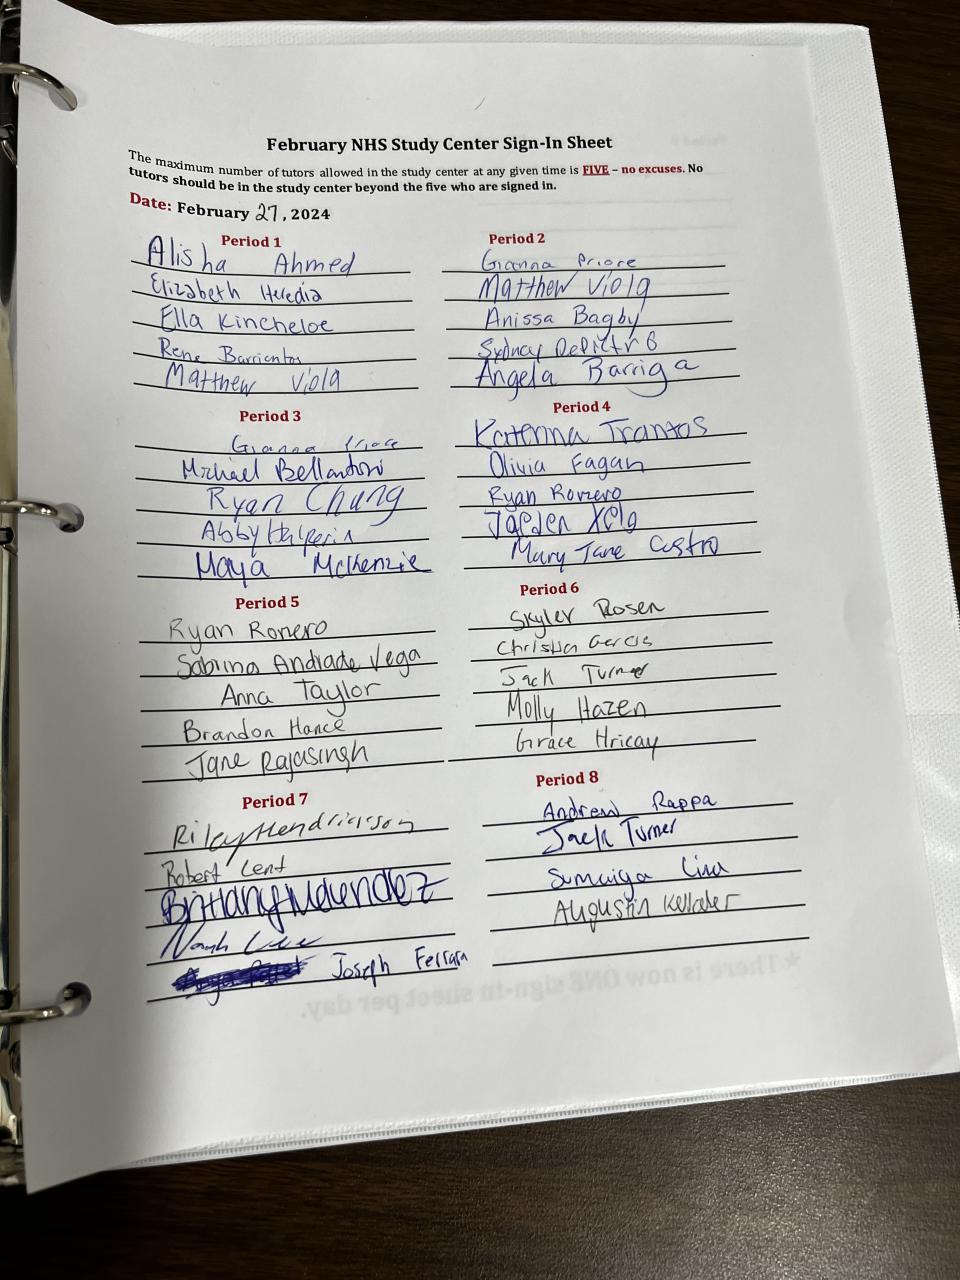 February NHS Study Center Sign-In Sheet
The maximum number of tutors allowed in the study center at any given time is FIVE – no excuses. No
tutors should be in the study center beyond the five who are signed in.
Date: February 27, 2024
Period 1
Alisha Ahmed
Elizabeth Heredia
Ella Kincheloe
Rene Barrientos
Matthew Viola
Period 2
Gianna Priore
Matthew Viola
Anissa Bagby
Sydney DePietro
Angela Barriga
Period 3
Gianna Priore
Michael Bellantoni
Ryan Chung
Abby Halperin
Maya McKenzie
Period 4
Katerina Trantos
Olivia Fagan
Ryan Romero
Jaeden Xela
Mary Jane Castro
Period 5
Ryan Romero
Sabrina Andrade Vega
Anna Taylor
Brandon Hance
Jane Rajasingh
Period 6
Skyler Rosen
Christian Garcia
Jack Turner
Molly Hazen
Grace Hricay
Period 7
Riley Hendrickson
Robert Lent
Brittany Melendez
Noah
Joseph Ferrara
Period 8
Andrew Rappa
Jack Turner
Sumaiya
Augustin Kelleher
*There is now ONE sign-in sheet per day.